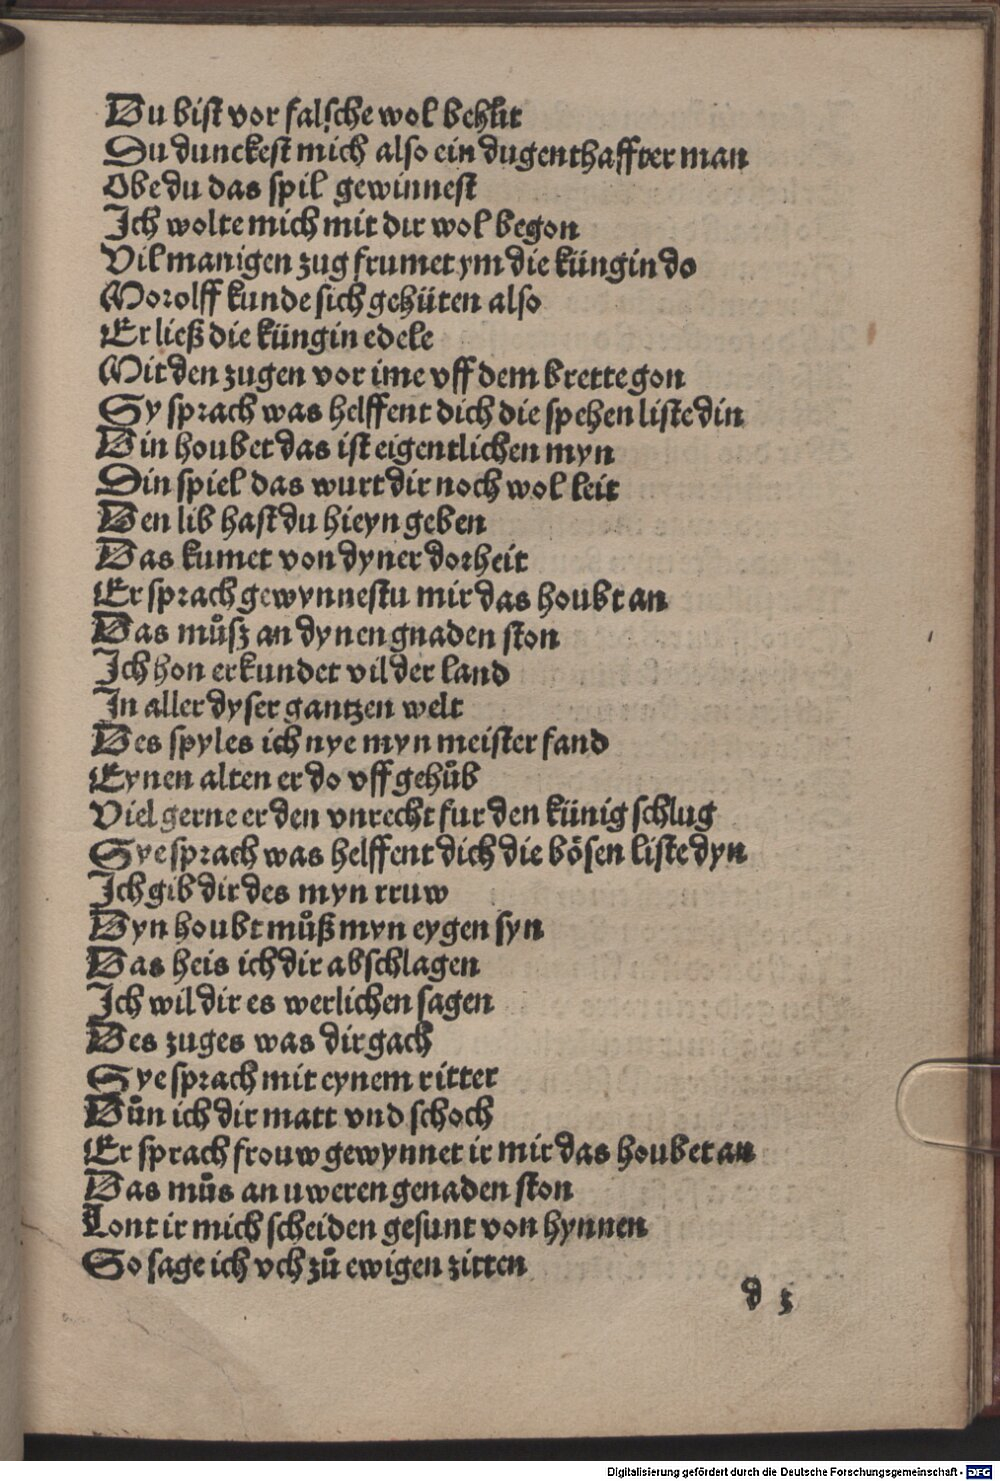 Du bist vor falsche wol behůt
Du dunckest mich also ein dugenthaffter man
Obe du das spil gewinnest
Ich wolte mich mit dir wol begon
Vil manigen zug frumet ym die küngin do
Morolff kunde sich gehüten also
Er ließ die küngin edele
Mit den zugen vor ime vff dem brette gon
Sy sprach was helffent dich die spehen liste din
Din houbet das ist eigentlichen myn
Din spiel das wurt dir noch wol leit
Den lib hast du hie yn geben
Das kumet von dyner dorheit
Er sprach gewynnestu mir das houbt an
Das můsz an dynen gnaden ston
Ich hon erkundet vil der land
In aller dyser gantzen welt
Des spyles ich nye myn meister fand
Eynen alten er do vff gehůb
Viel gerne er den vnrecht fur den künig schlug
Sye sprach was helffent dich die bösen liste dyn
Ich gib dir des myn rruw
Dyn houbt můß myn eygen syn
Das heis ich dir abschlagen
Ich wil dir es werlichen sagen
Des zuges was dir gach
Sye sprach mit eynem ritter
Důn ich dir matt vnd schoch
Er sprach frouw gewynnet ir mir das houbet an
Das můs an uweren genaden ston
Lont ir mich scheiden gesunt von hynnen
So sage ich vch zů ewigen zitten
d 3
Digitalisierung gefördert durch die Deutsche Forschungsgemeinschaft - DFG